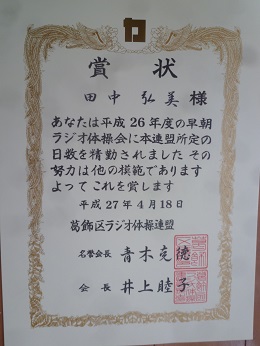 賞状
田中 弘美 様
あなたは平成26年度の早朝
ラジオ体操会に本連盟所定の
日数を精勤されました その
努力は他の模範であります
よって これを賞します
平成27年4月18日
葛飾区ラジオ体操連盟
名誉会長 青木克德
会長 井上睦子